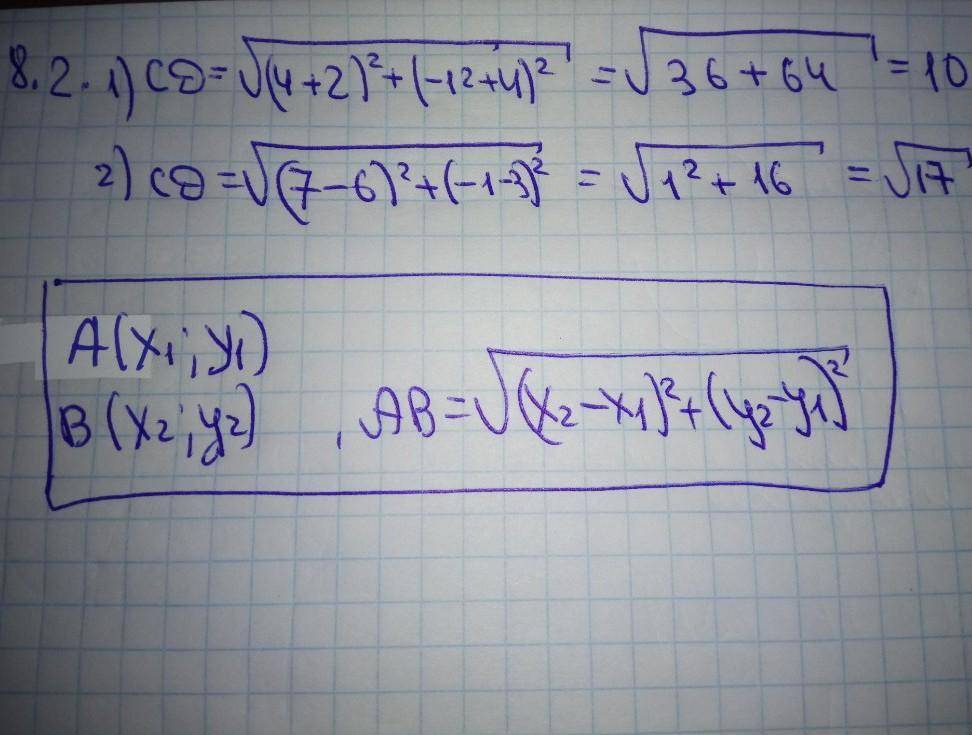 8.2. 1) CD=√(4+2)²+(-12+4)² = √36+64 = 10
2) CD=√(7-6)²+(-1-3)² = √1²+16 = √17
A(x₁; y₁)
B(x₂; y₂) , AB=√(x₂-x₁)²+(y₂-y₁)²